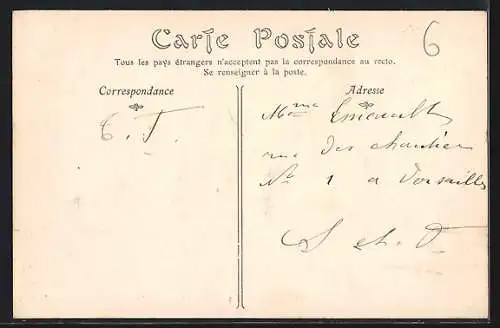 Carte Postale
6
Tous les pays étrangers n'acceptent pas la correspondance au recto.
Se renseigner à la poste.
Correspondance
E. T.
Adresse
Mme
rue des chantier
No 1 a Versailles
S et. O